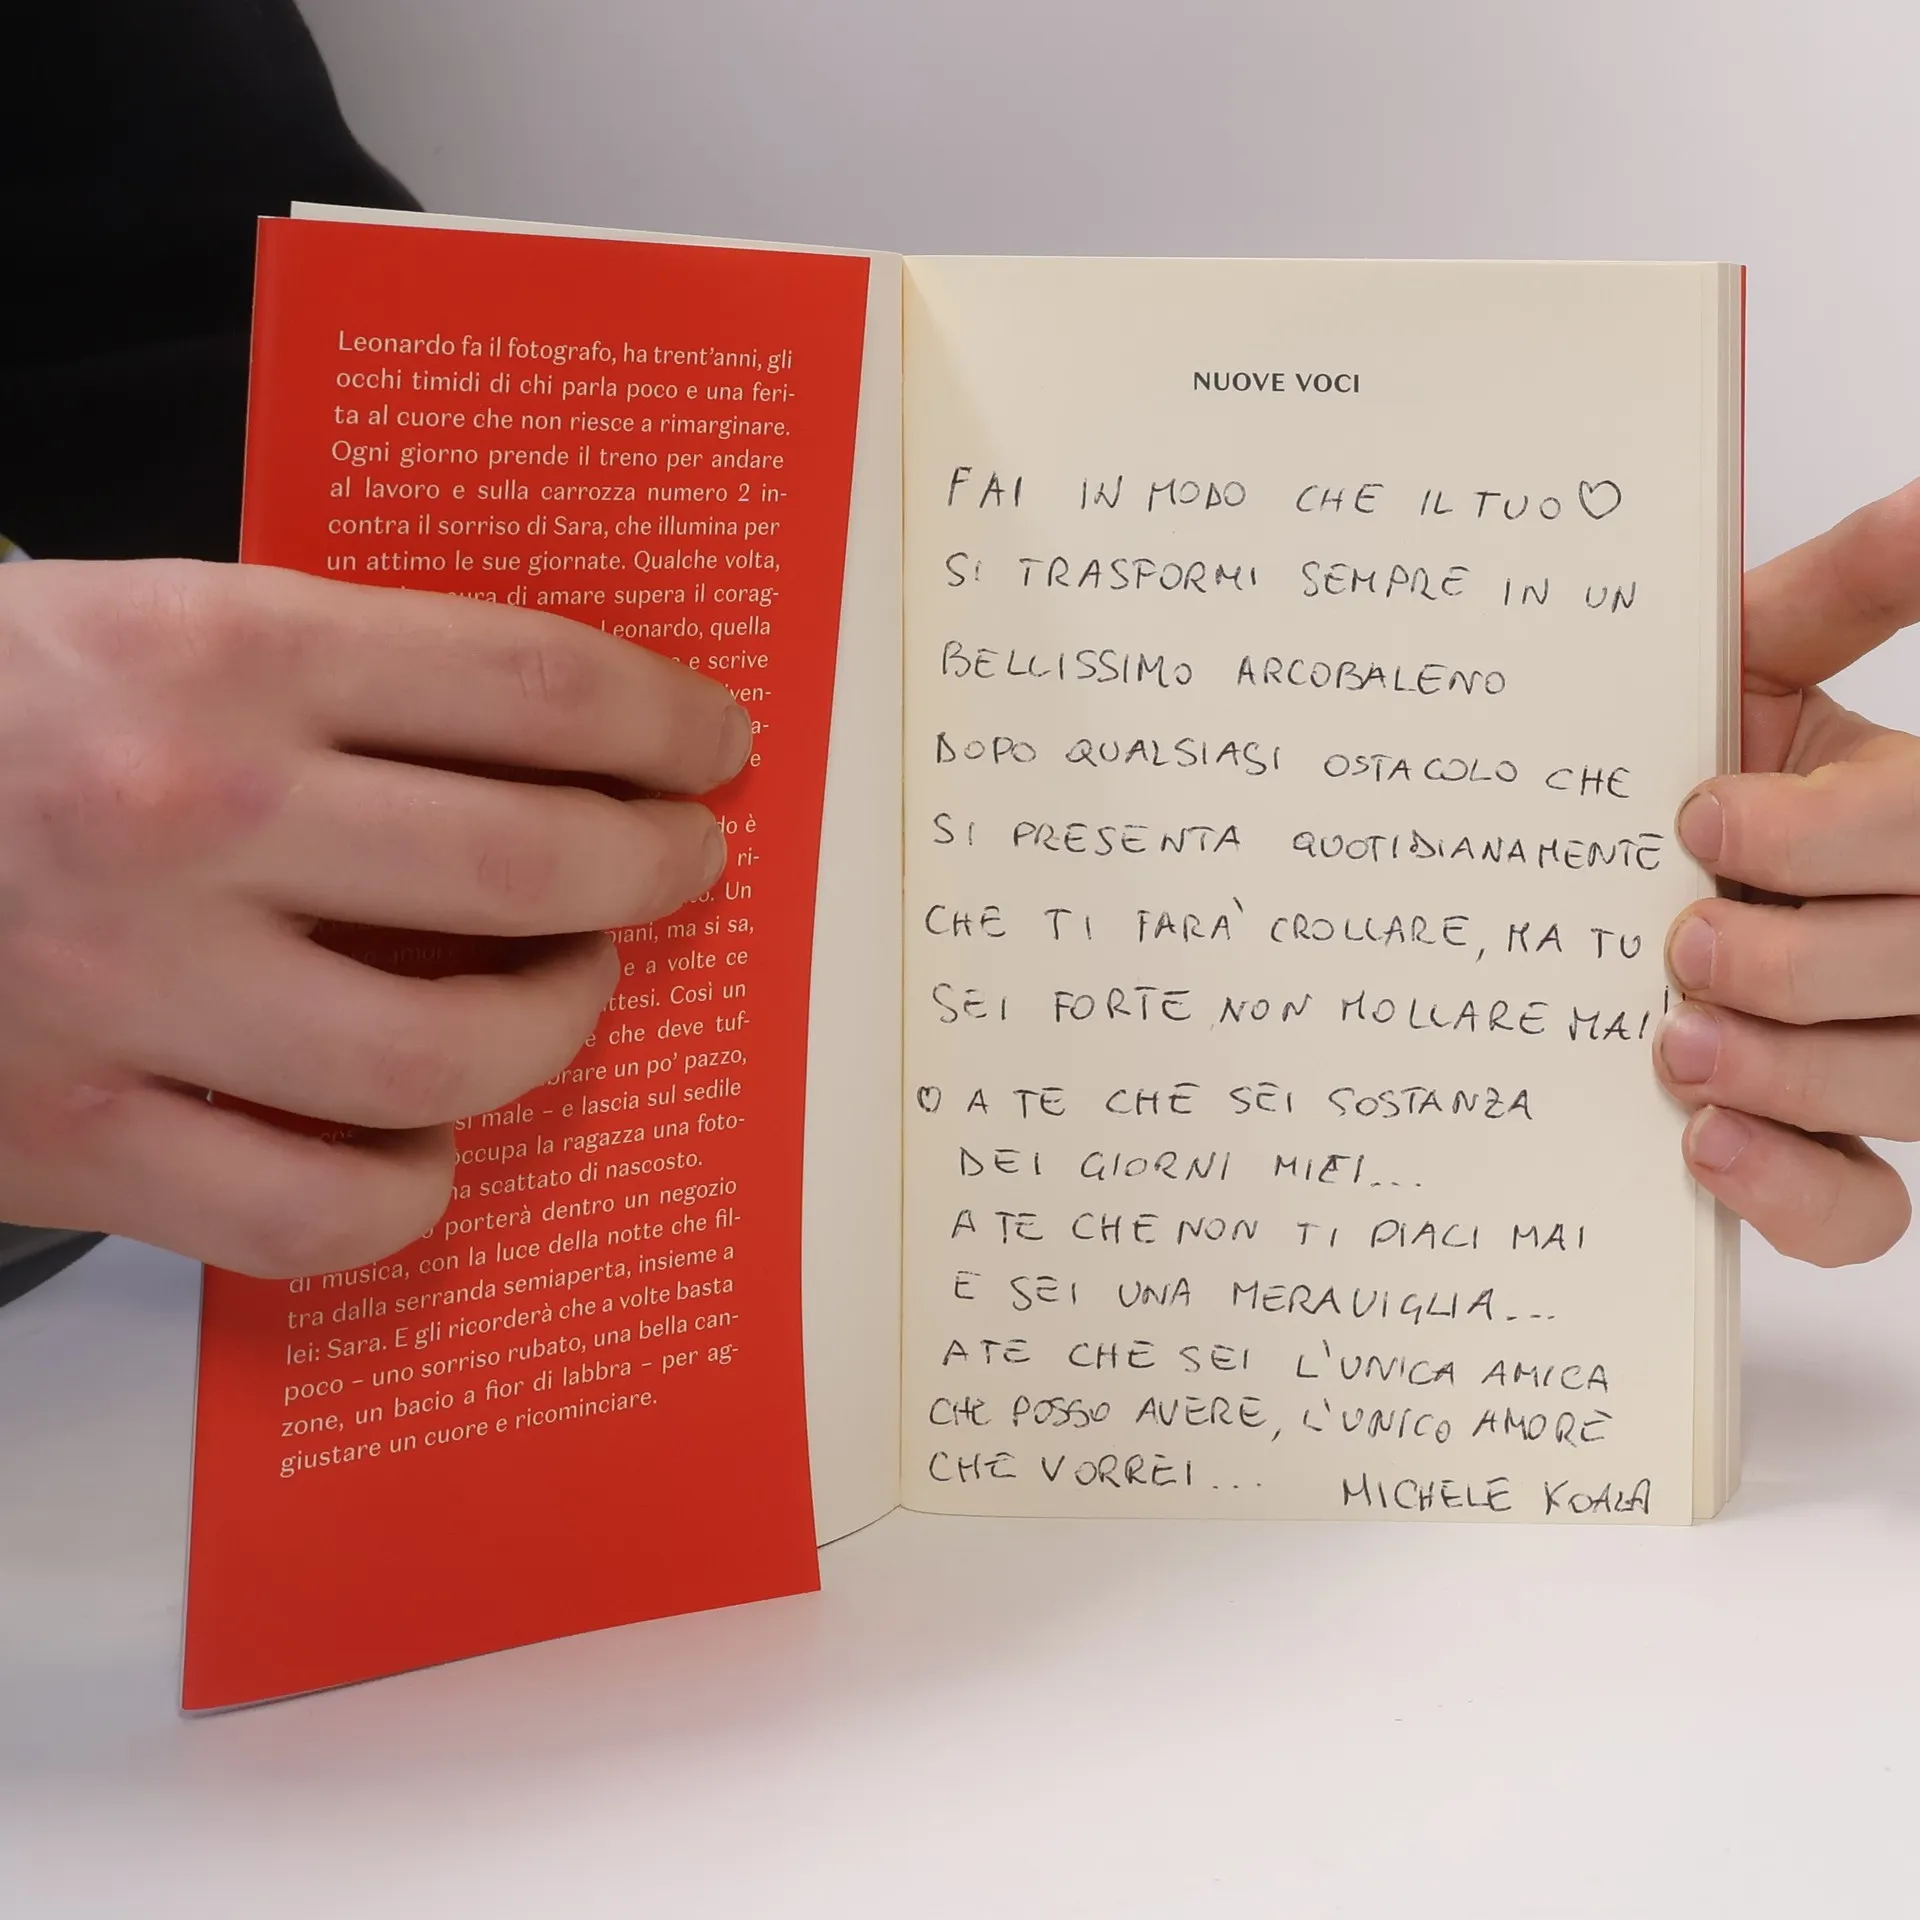 Leonardo fa il fotografo, ha trent’anni, gli
occhi timidi di chi parla poco e una feri-
ta al cuore che non riesce a rimarginare.
Ogni giorno prende il treno per andare
al lavoro e sulla carrozza numero 2 in-
contra il sorriso di Sara, che illumina per
un attimo le sue giornate. Qualche volta,
di amare supera il corag-
Leonardo, quella
e scrive
è
ri-
Un
ma si sa,
e a volte ce
Così un
che deve tuf-
un po’ pazzo,
male – e lascia sul sedile
la ragazza una foto-
scattato di nascosto.
porterà dentro un negozio
di musica, con la luce della notte che fil-
tra dalla serranda semiaperta, insieme a
lei: Sara. E gli ricorderà che a volte basta
poco – uno sorriso rubato, una bella can-
zone, un bacio a fior di labbra – per ag-
giustare un cuore e ricominciare.
NUOVE VOCI
FAI IN MODO CHE IL TUO ♡
SI TRASFORMI SEMPRE IN UN
BELLISSIMO ARCOBALENO
DOPO QUALSIASI OSTACOLO CHE
SI PRESENTA QUOTIDIANAMENTE
CHE TI FARA' CROLLARE, MA TU
SEI FORTE NON MOLLARE MAI!
♡ A TE CHE SEI SOSTANZA
DEI GIORNI MIEI...
A TE CHE NON TI PIACI MAI
E SEI UNA MERAVIGLIA...
A TE CHE SEI L'UNICA AMICA
CHE POSSO AVERE, L'UNICO AMORE
CHE VORREI... MICHELE KOALA